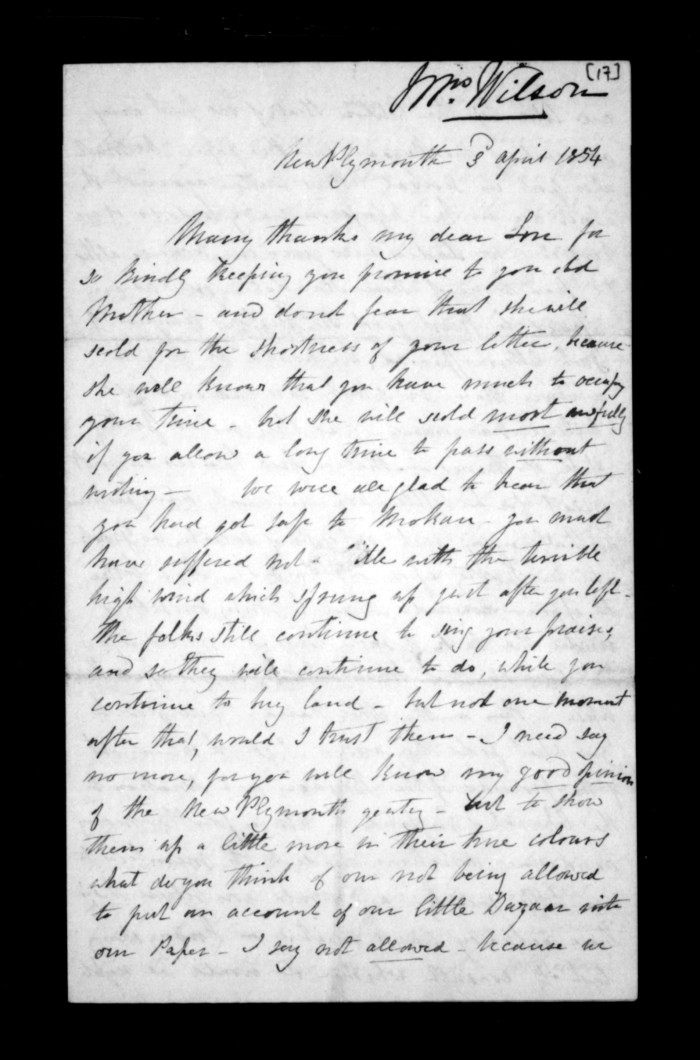 [17]
Mrs. Wilson
New Plymouth 3 April 1854
Many thanks my dear Son for
so kindly keeping your promise to your old
Mother - and do not fear that she will
scold for the shortness of your letter, because
she well knows that you have much to occupy
your time - but she will scold most awfully
if you allow a long time to pass without
writing - We were all glad to hear that
you had got safe to Mokau - you must
have suffered not a little with the terrible
high wind which sprung up just after you left -
the folks still continue to sing your praises
and so they will continue to do, while you
continue to buy land - but not one moment
after that, would I trust them - I need say
no more, for you well know my good opinion
of the New Plymouth gentry - but to show
them up a little more in their true colours
what do you think of our not being allowed
to put an account of our little Bazaar into
our Paper - I say not allowed - because we